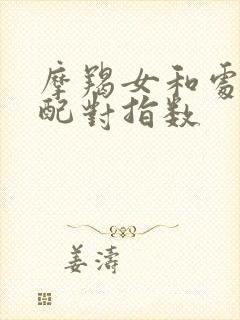 摩羯女和處
配對指数
姜濤